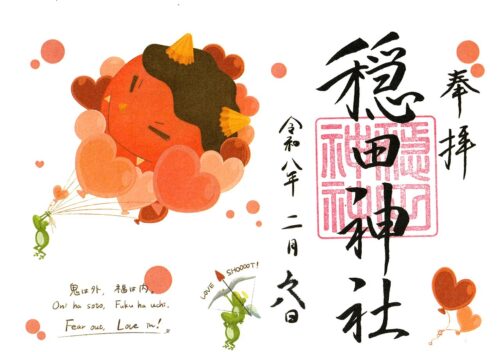 奉拝
穏田神社
穏田
神社
令和八年 二月 日
鬼は外, 福は内,
Oni ha soto, Fuku ha uchi.
Fear out, Love in!
LOVE SHOOOOT!